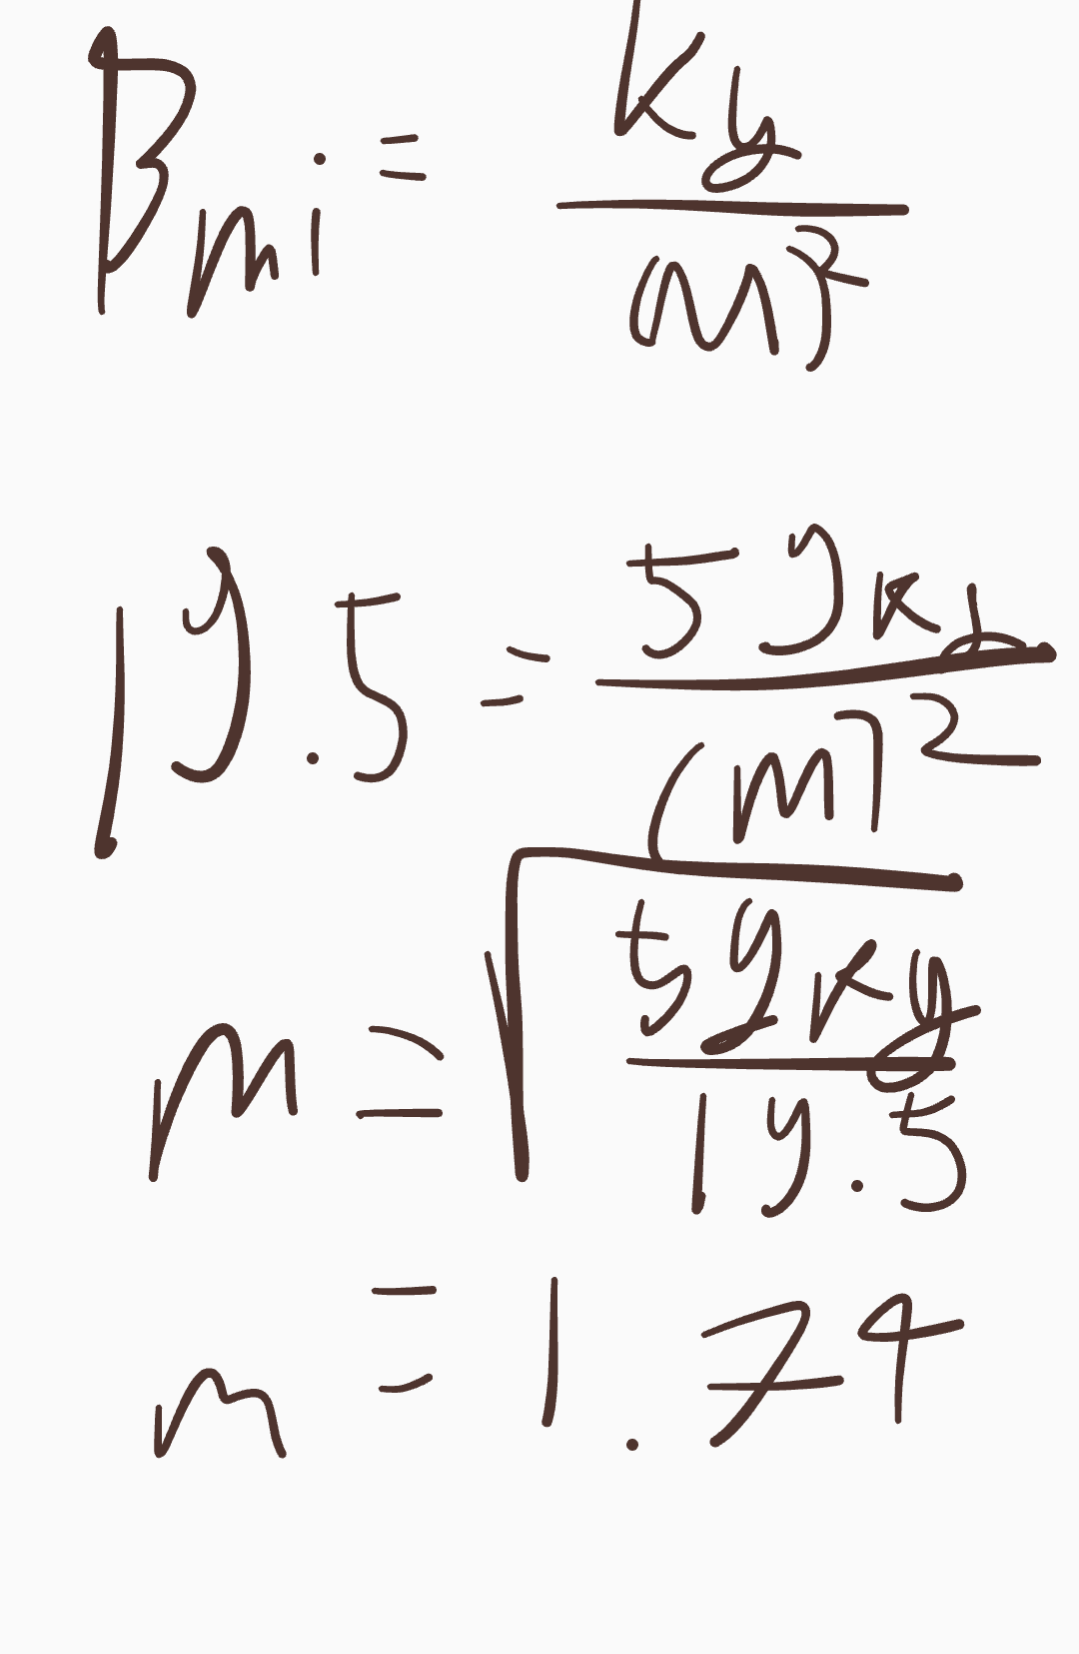 Bmi = kg/(m)²
19.5 = 59kg/(m)²
m = √(59kg/19.5)
m = 1.74